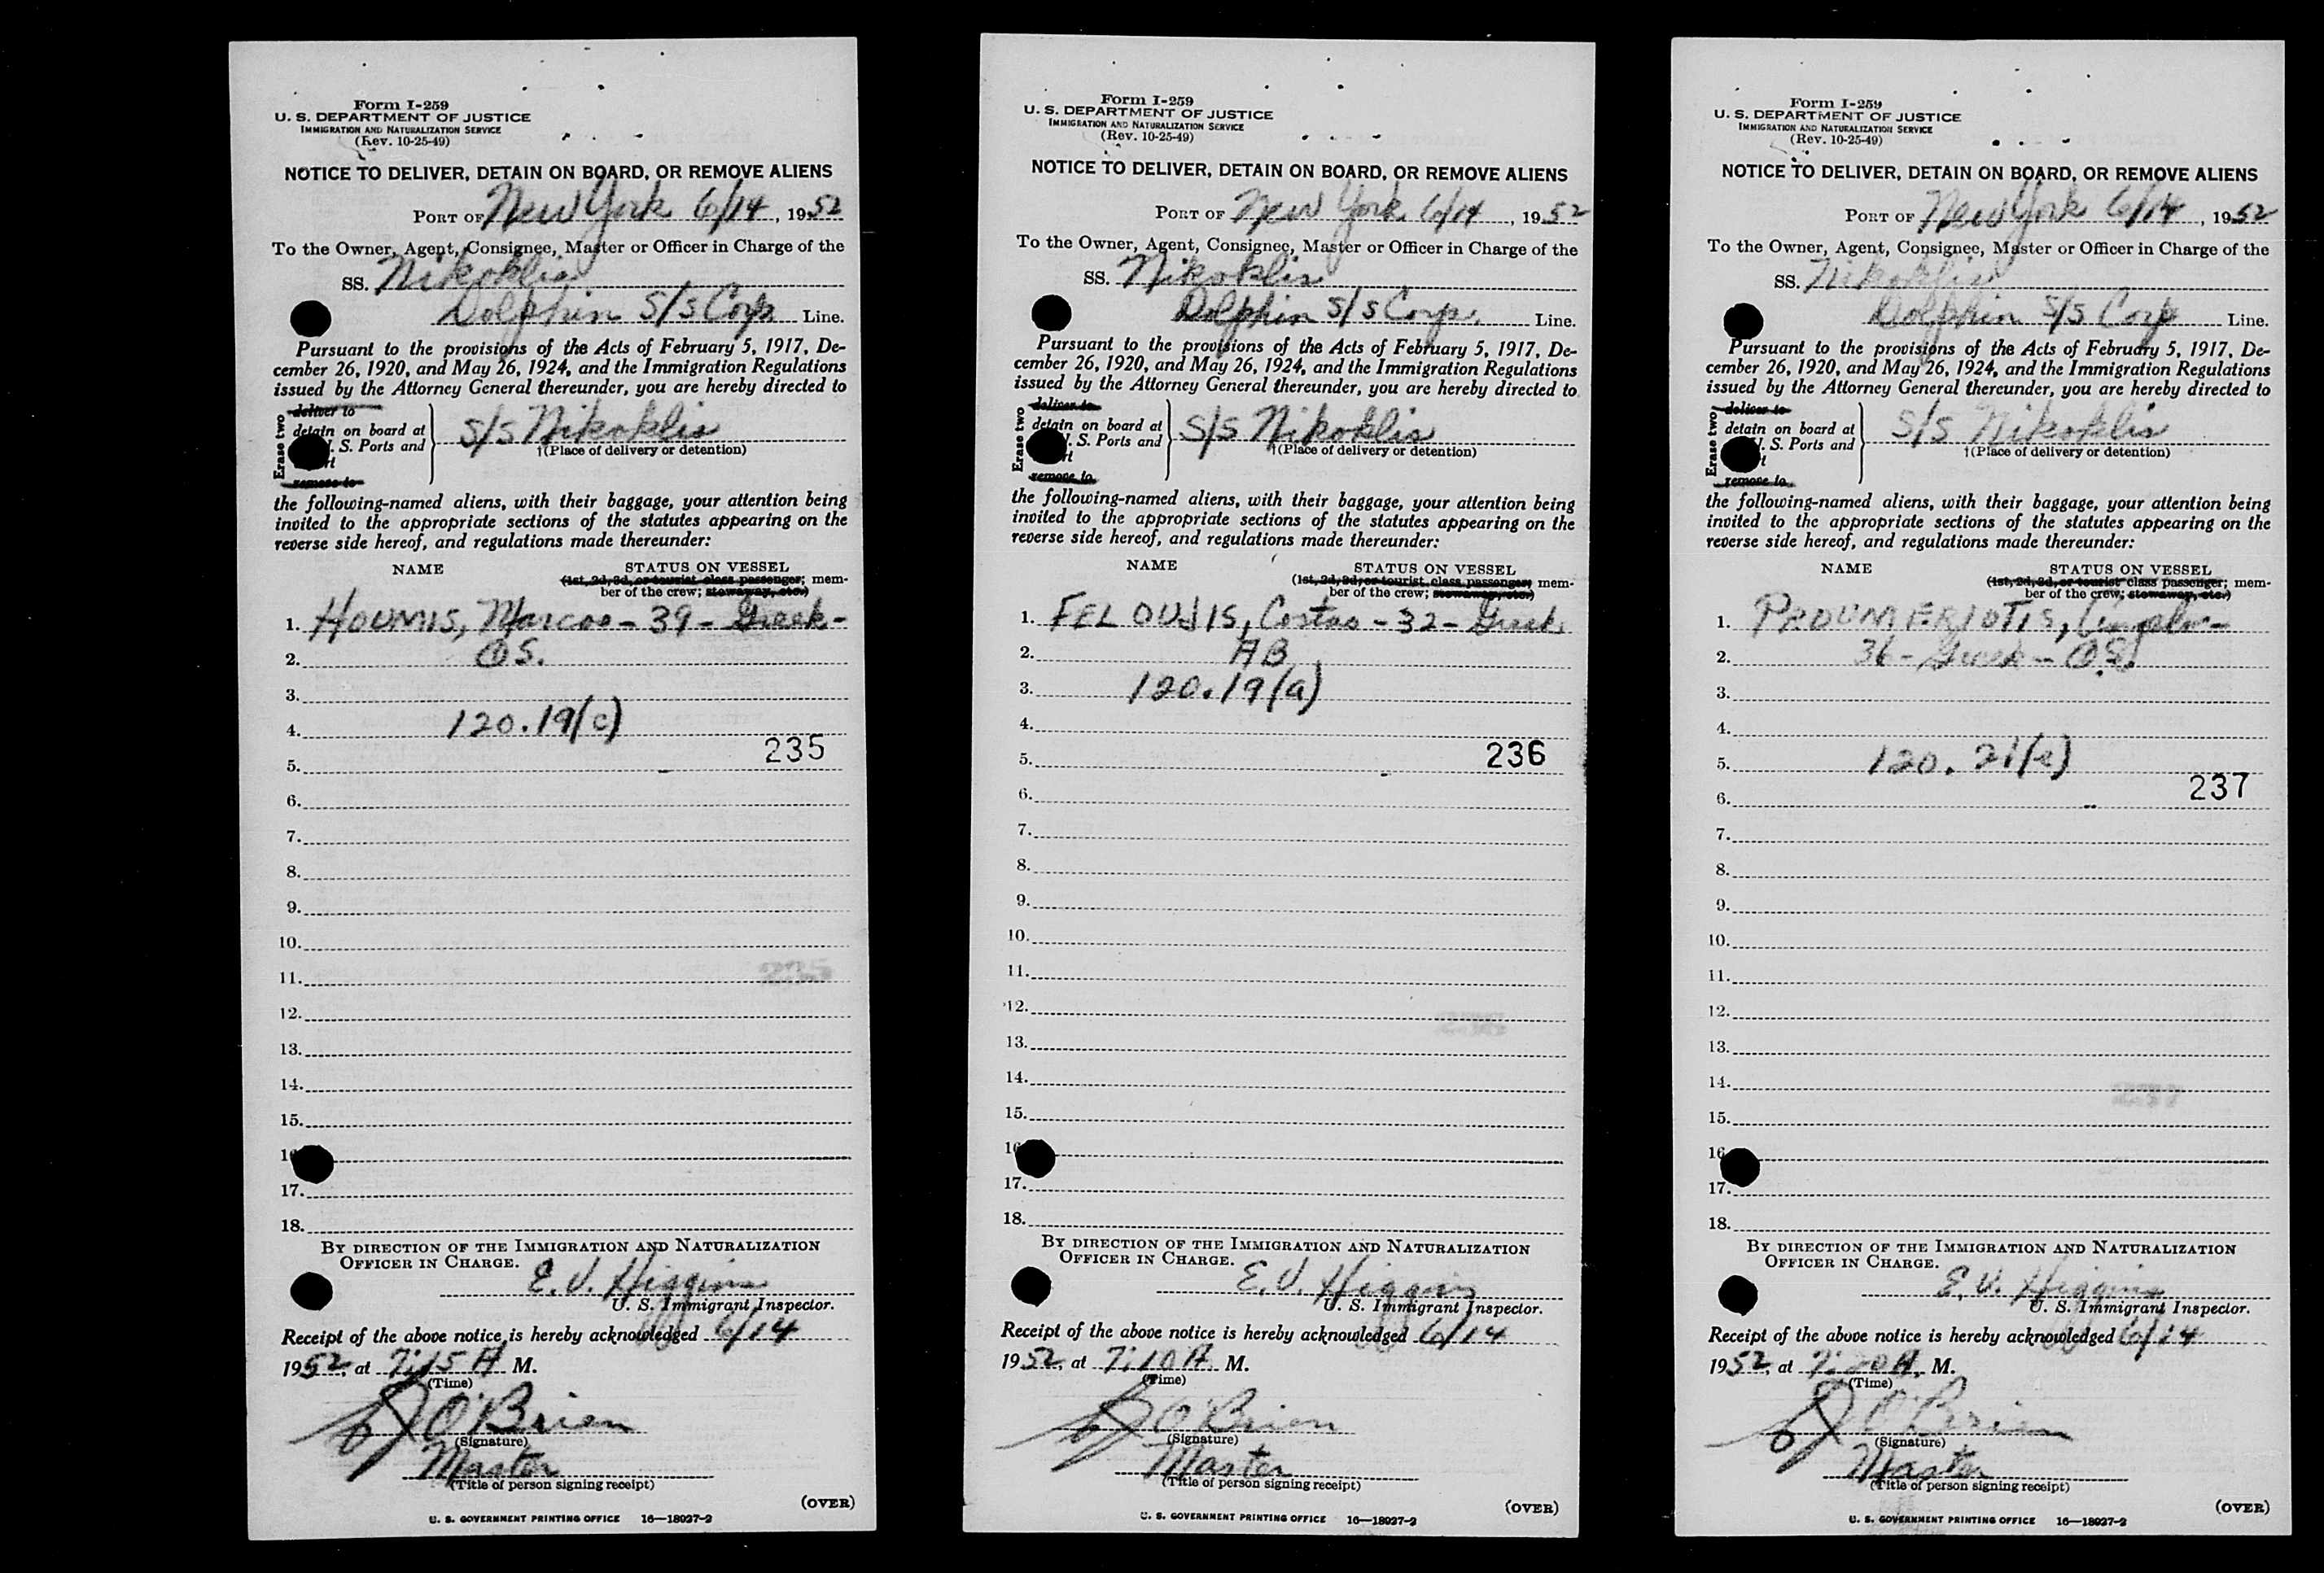 Form I-259
U. S. DEPARTMENT OF JUSTICE
IMMIGRATION AND NATURALIZATION SERVICE
(Rev. 10-25-49)
NOTICE TO DELIVER, DETAIN ON BOARD, OR REMOVE ALIENS
PORT OF New York 6/14, 1952
To the Owner, Agent, Consignee, Master or Officer in Charge of the
SS. Nikoklis
Dolphin S/S Corp. Line.
Pursuant to the provisions of the Acts of February 5, 1917, De-
cember 26, 1920, and May 26, 1924, and the Immigration Regulations
issued by the Attorney General thereunder, you are hereby directed to
Erase two
deliver to
detain on board at
. S. Ports and
remove to
S/S Nikoklis
†(Place of delivery or detention)
the following-named aliens, with their baggage, your attention being
invited to the appropriate sections of the statutes appearing on the
reverse side hereof, and regulations made thereunder:
NAME STATUS ON VESSEL
(1st, 2d, 3d, or tourist class passenger; mem-
ber of the crew; stowaway, etc.)
1. HOUMIS, Marcos - 39 - Greek -
2. OS.
3.
4. 120.19(c)
235
5.
6.
7.
8.
9.
10.
11. 235
12.
13.
14.
15.
16
17.
18.
BY DIRECTION OF THE IMMIGRATION AND NATURALIZATION
OFFICER IN CHARGE.
E. V. Higgins
U. S. Immigrant Inspector.
Receipt of the above notice is hereby acknowledged 6/14
1952, at 7:15 A. M.
(Time)
O'Brien
(Signature)
Master
(Title of person signing receipt)
(OVER)
U. S. GOVERNMENT PRINTING OFFICE 16—18927-2
Form I-259
U. S. DEPARTMENT OF JUSTICE
IMMIGRATION AND NATURALIZATION SERVICE
(Rev. 10-25-49)
NOTICE TO DELIVER, DETAIN ON BOARD, OR REMOVE ALIENS
PORT OF New York 6/14, 1952
To the Owner, Agent, Consignee, Master or Officer in Charge of the
SS. Nikoklis
Dolphin S/S Corp. Line.
Pursuant to the provisions of the Acts of February 5, 1917, De-
cember 26, 1920, and May 26, 1924, and the Immigration Regulations
issued by the Attorney General thereunder, you are hereby directed to
Erase two
deliver to
detain on board at
. S. Ports and
remove to
S/S Nikoklis
†(Place of delivery or detention)
the following-named aliens, with their baggage, your attention being
invited to the appropriate sections of the statutes appearing on the
reverse side hereof, and regulations made thereunder:
NAME STATUS ON VESSEL
(1st, 2d, 3d, or tourist class passenger; mem-
ber of the crew; stowaway, etc.)
1. FELOUJIS, Costas - 32 - Greek
2. AB
3. 120.19(a)
4.
5. 236
6.
7.
8.
9.
10.
11.
12. 236
13.
14.
15.
16
17.
18.
BY DIRECTION OF THE IMMIGRATION AND NATURALIZATION
OFFICER IN CHARGE.
E. V. Higgins
U. S. Immigrant Inspector.
Receipt of the above notice is hereby acknowledged 6/14
1952, at 7:10 A. M.
(Time)
O'Brien
(Signature)
Master
(Title of person signing receipt)
(OVER)
U. S. GOVERNMENT PRINTING OFFICE 16—18927-2
Form I-259
U. S. DEPARTMENT OF JUSTICE
IMMIGRATION AND NATURALIZATION SERVICE
(Rev. 10-25-49)
NOTICE TO DELIVER, DETAIN ON BOARD, OR REMOVE ALIENS
PORT OF New York 6/14, 1952
To the Owner, Agent, Consignee, Master or Officer in Charge of the
SS. Nikoklis
Dolphin S/S Corp Line.
Pursuant to the provisions of the Acts of February 5, 1917, De-
cember 26, 1920, and May 26, 1924, and the Immigration Regulations
issued by the Attorney General thereunder, you are hereby directed to
Erase two
deliver to
detain on board at
. S. Ports and
remove to
S/S Nikoklis
†(Place of delivery or detention)
the following-named aliens, with their baggage, your attention being
invited to the appropriate sections of the statutes appearing on the
reverse side hereof, and regulations made thereunder:
NAME STATUS ON VESSEL
(1st, 2d, 3d, or tourist class passenger; mem-
ber of the crew; stowaway, etc.)
1. PROUMERIOTIS,
2. 36 - Greek - OS.
3.
4.
5. 120.21(e)
237
6.
7.
8.
9.
10.
11.
12.
13.
14. 237
15.
16
17.
18.
BY DIRECTION OF THE IMMIGRATION AND NATURALIZATION
OFFICER IN CHARGE.
E. V. Higgins
U. S. Immigrant Inspector.
Receipt of the above notice is hereby acknowledged 6/14
1952, at 7:20 A. M.
(Time)
O'Brien
(Signature)
Master
(Title of person signing receipt)
(OVER)
U. S. GOVERNMENT PRINTING OFFICE 16—18927-2